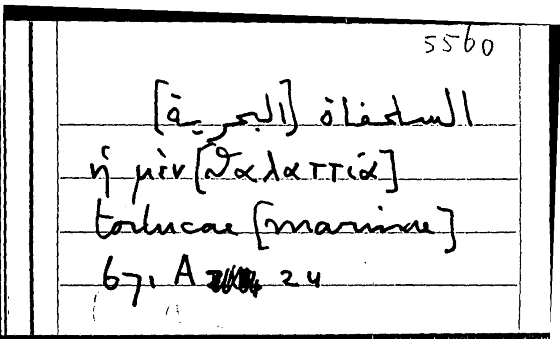 5560
السلحفاة [البحرية]
ἡ μὲν [θαλαττία]
tortucae [marinae]
671 A 24